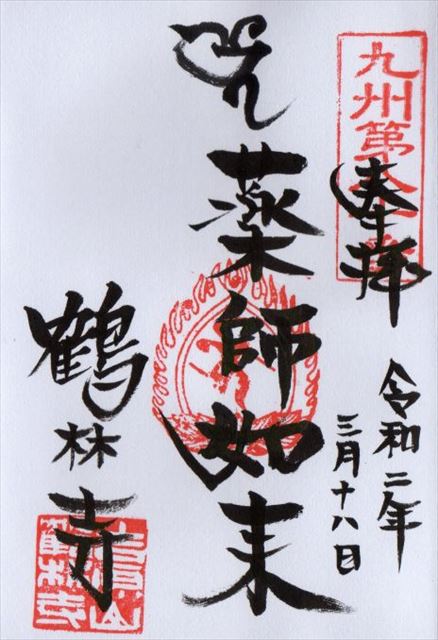 奉拝
令和二年
三月十八日
薬師如来
鶴林寺
九州第